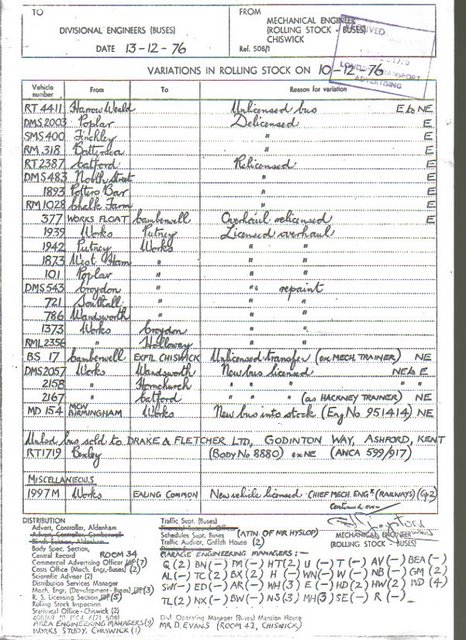 TO
DIVISIONAL ENGINEERS (BUSES)
DATE 13-12-76
FROM
MECHANICAL ENGINEER
(ROLLING STOCK - BUSES)
CHISWICK
Ref. 508/1
ADVERTISING
VARIATIONS IN ROLLING STOCK ON 10-12-76
Vehicle number From To Reason for variation
RT 4411 Harrow Weald Unlicensed bus E to NE
DMS 2003 Poplar Delicensed E
SMS 400 Finchley " E
RM 318 Battersea " E
RT 2387 Catford Relicensed E
DMS 483 North Street " E
1893 Potters Bar " E
RM 1028 Chalk Farm " E
377 WORKS FLOAT Camberwell Overhaul relicensed E
1939 Works Putney Licensed overhaul
1942 Putney Works " "
1873 West Ham " " "
101 Poplar " " "
DMS 543 Croydon " " repaint
721 Southall " " "
786 Wandsworth " " "
1373 Works Croydon " "
RML 2356 " Holloway " "
BS 17 Camberwell EXPTL CHISWICK Unlicensed transfer (ex MECH. TRAINER) NE
DMS 2057 Works Wandsworth New bus licensed NE to E
2158 " Hornchurch " " " "
2167 " Catford " " (as HACKNEY TRAINER) NE
MD 154 MCW BIRMINGHAM Works New bus into stock (Eng No 951414) NE
Unlcd bus sold to DRAKE & FLETCHER LTD, GODINTON WAY, ASHFORD, KENT
RT1719 Bexley (Body No 8880) ex NE (ANCA 599/917)
MISCELLANEOUS
1997M Works EALING COMMON New vehicle licensed CHIEF MECH. ENGR (RAILWAYS) (G2)
Continued over
DISTRIBUTION
Advert, Controller, Aldenham
Advert, Controller, Camberwell
Body Spec. Section,
Central Record ROOM 34
Commercial Advertising Officer (7)
Cost Office (Mech. Engr.-Buses) (2)
Scientific Adviser (2)
Distribution Services Manager
Mech. Engr. (Development - Buses) (3)
R. S. Licensing Section (5)
Rolling Stock Inspection
Statistical Office - Chiswick (2)
AREA ENGINEERING MANAGERS (9)
WORKS STUDY, CHISWICK (1)
Traffic Supt. (Buses)
Schedules Supt. (Buses) (ATTN OF MR HYSLOP)
Traffic Auditor, Griffith House (2)
MECHANICAL ENGINEER
(ROLLING STOCK - BUSES)
GARAGE ENGINEERING MANAGERS :-
Q (2) BN (-) PM (-) HT (2) U (-) T (-) AV (-) BEA (-)
AL (-) TC (2) BX (2) H (-) WN (-) W (-) NB (-) GM (2)
SW (-) ED (-) AR (-) WH (3) E (-) HD (2) HW (2) WD (4)
TL (2) NX (-) BW (-) NS (3) MH (3) SE (-) R (-)
Div! Operating Manager (Buses) Mansion House
MR D. EVANS (ROOM 42, CHISWICK)